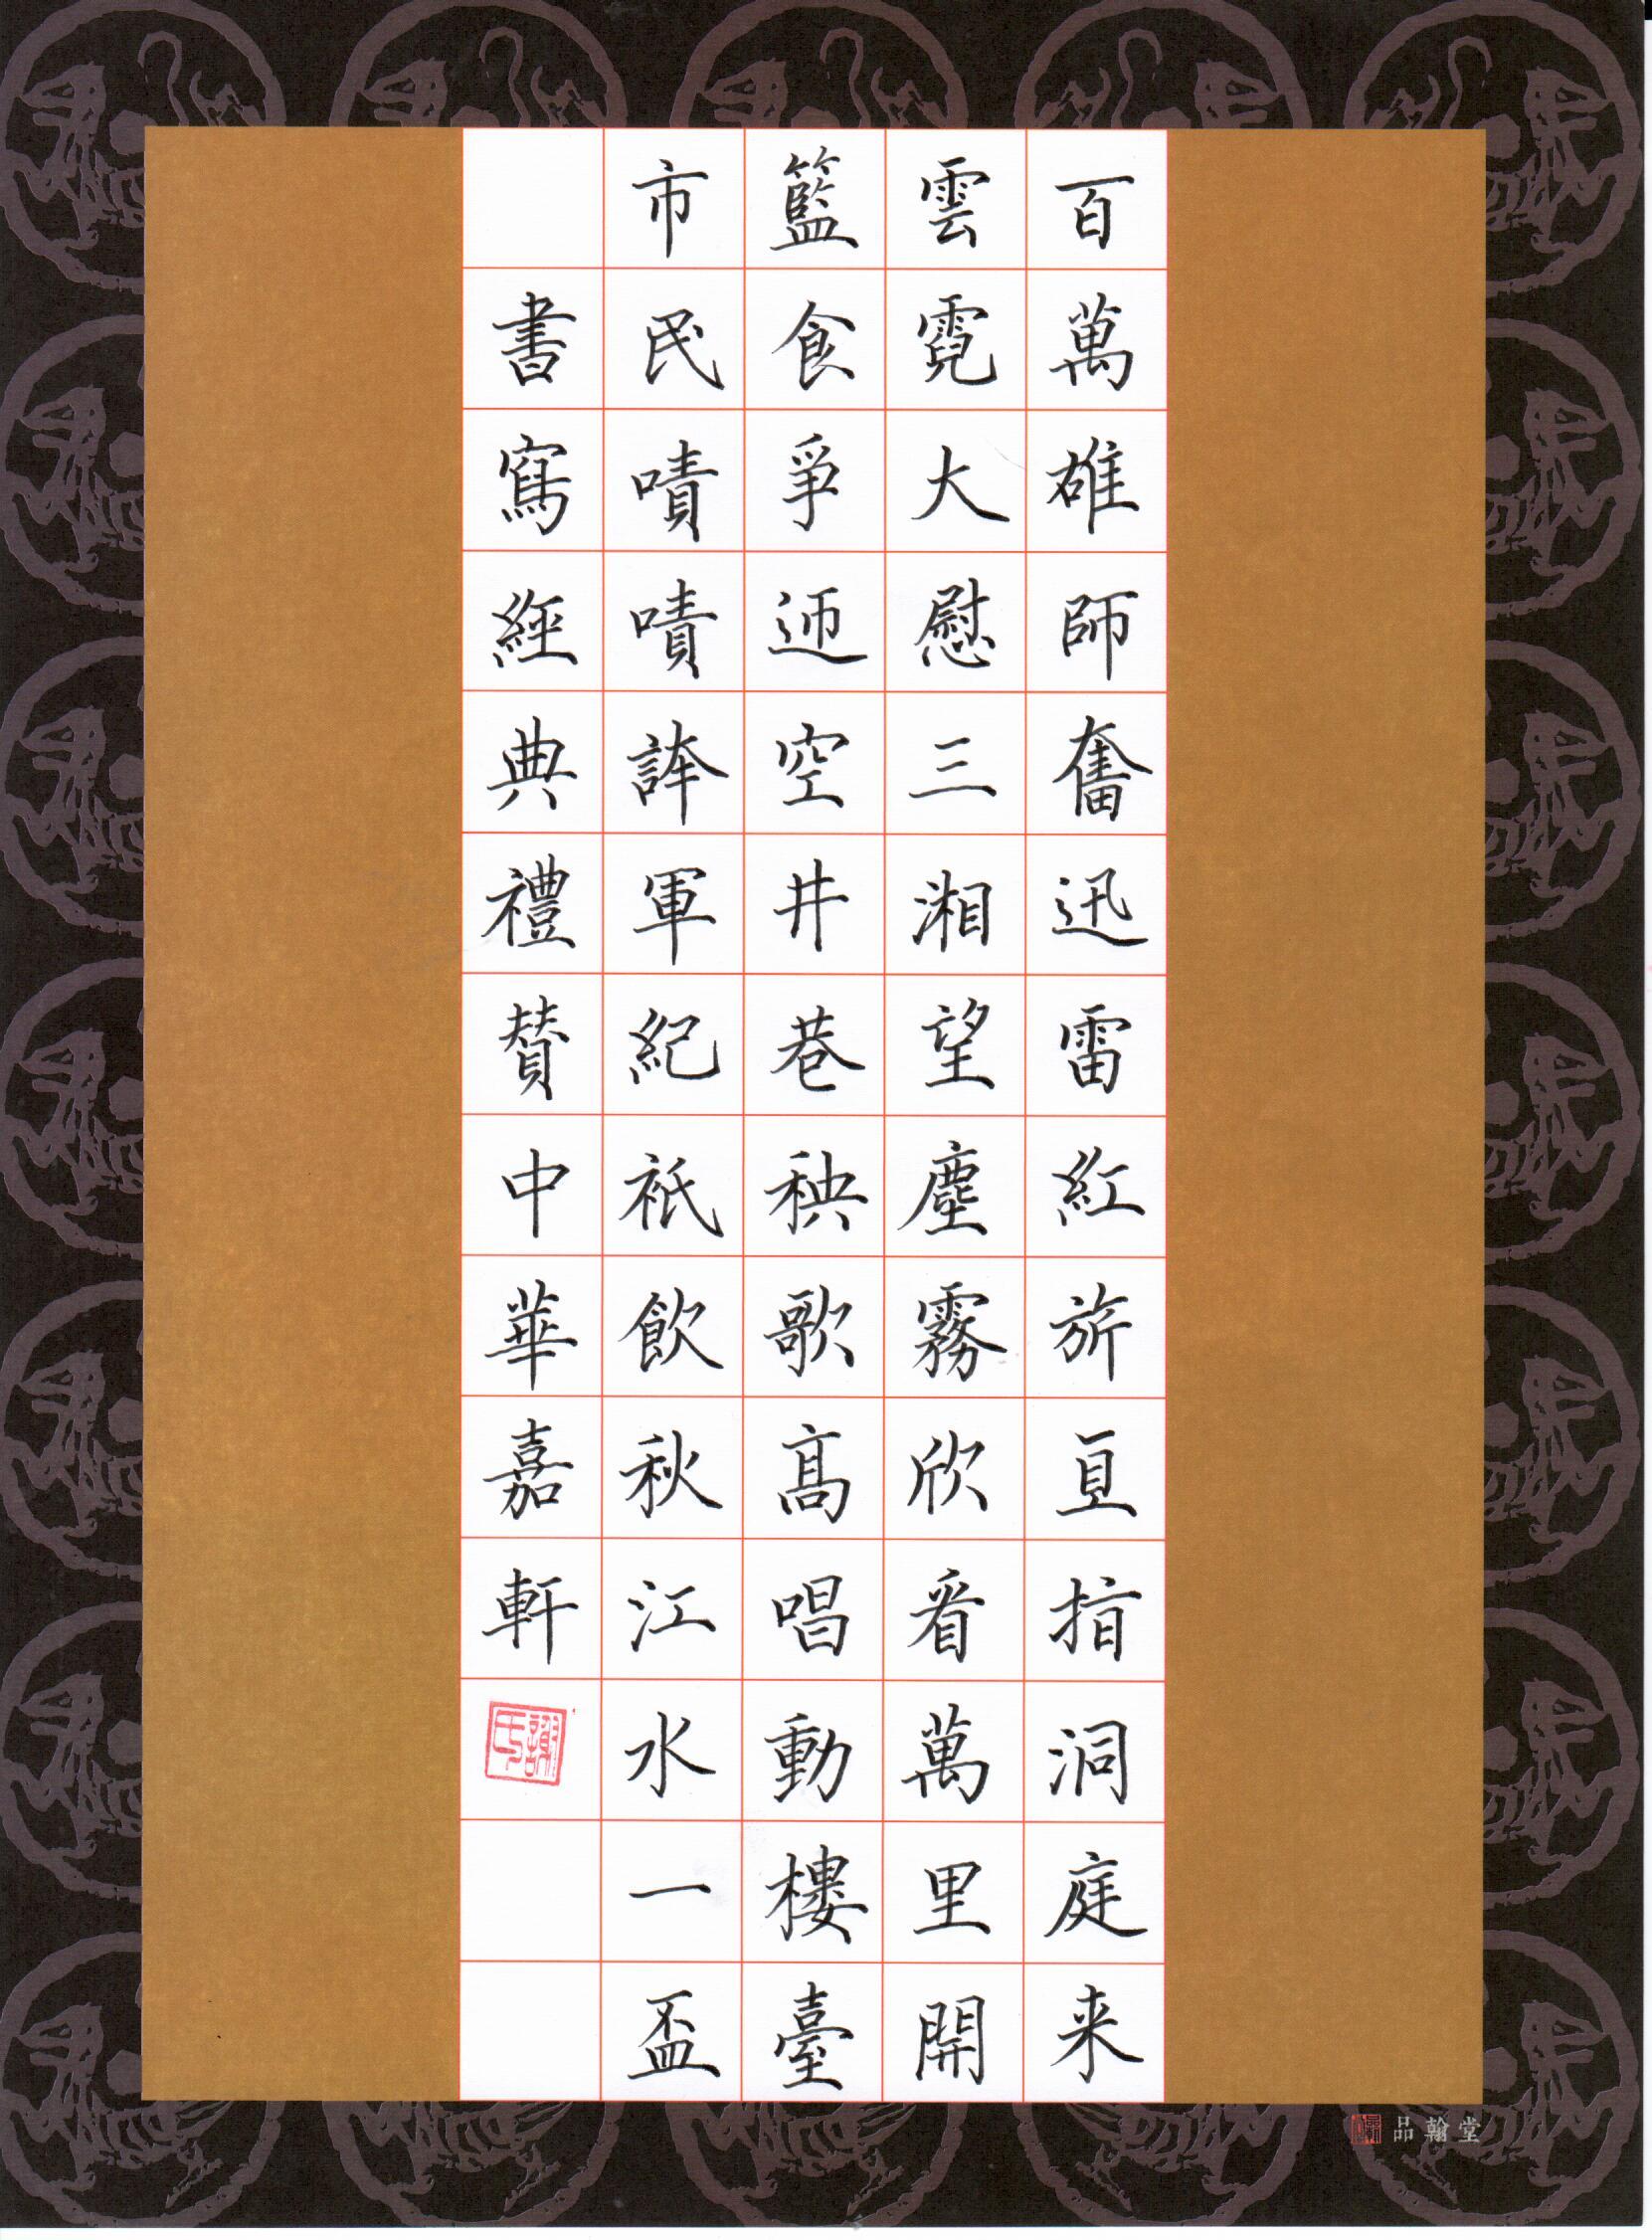 百萬雄師奮迅雷紅旂直指洞庭来
雲霓大慰三湘望塵霧欣看萬里開
籃食爭迊空井巷秧歌髙唱動樓臺
市民嘖嘖誇軍紀衹飲秋江水一盃
書寫經典禮賛中華嘉軒
謝氏
品翰堂